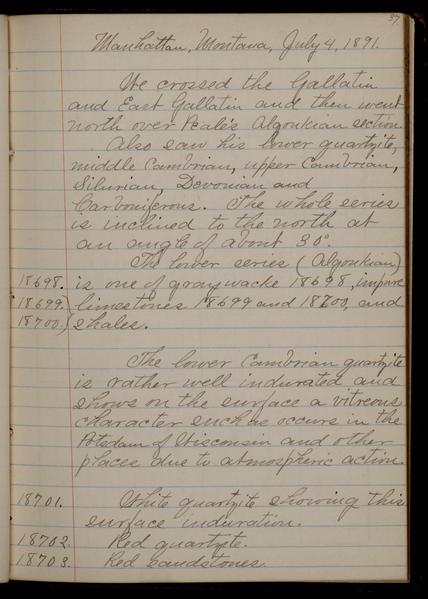 37.
Manhattan, Montana, July 4, 1891.
We crossed the Gallatin
and East Gallatin and then went
north over Peale's Algonkian section.
Also saw his lower quartzite,
middle Cambrian, upper Cambrian,
Silurian, Devonian and
Carboniferous. The whole series
is inclined to the north at
an angle of about 30°.
The lower series (Algonkian)
18698. is one of graywacke 18698, impure
18699. limestones 18699 and 18700, and
18700. shales.
The lower Cambrian quartzite
is rather well indurated and
shows on the surface a vitreous
character such as occurs in the
Potsdam of Wisconsin and other
places due to atmospheric action.
18701. White quartzite showing this
surface induration.
18702. Red quartzite.
18703. Red sandstones.